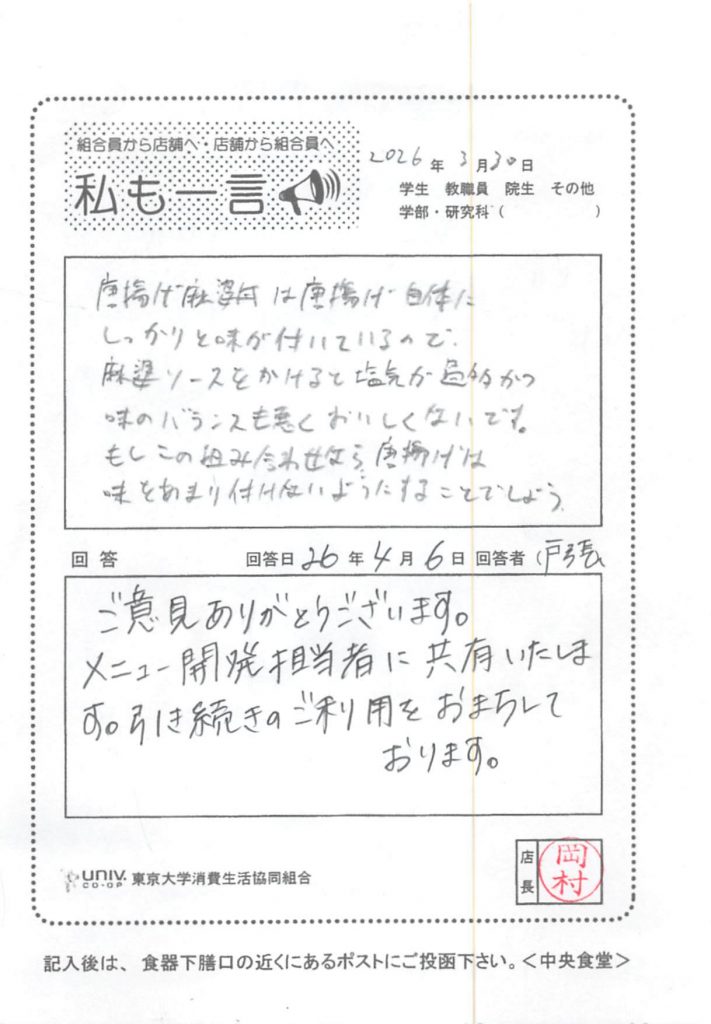 組合員から店舗へ・店舗から組合員へ
私も一言
2026年 3月30日
学生 教職員 院生 その他
学部・研究科( )
唐揚げ麻婆丼は唐揚げ自体に
しっかりと味が付いているので、
麻婆ソースをかけると塩気が過多かつ
味のバランスも悪くおいしくないです。
もしこの組み合わせなら、唐揚げは
味をあまり付けないようにすることでしょう
回答 回答日 26年 4月 6日 回答者(戸張
ご意見ありがとうございます。
メニュー開発担当者に共有いたしま
す。引き続きのご利用をおまちして
おります。
店長 岡村
UNIV. CO-OP 東京大学消費生活協同組合
記入後は、食器下膳口の近くにあるポストにご投函下さい。<中央食堂>